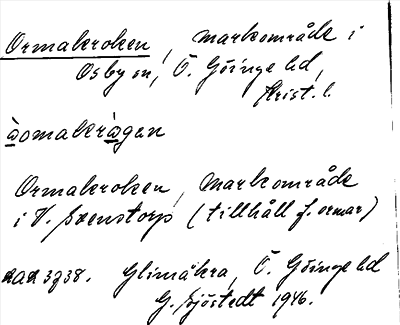 Ormakroken, markområde i
Osby sn, Ö. Göinge hd,
Krist. l.
Ormakroken, markområde
i V. Svenstorp (tillhåll f. ormar)
3938. Glimåkra, Ö. Göinge hd
G. Sjöstedt 1946.